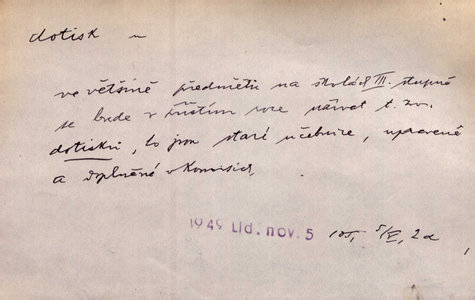 dotisk m
ve většině předmětů na školách III. stupně
se bude v příštím roce užívat t. zv.
dotisků, to jsou staré učebnice, upravené
a doplněné v komisích,
1949 Lid. nov. 5 105, 5/V, 2a